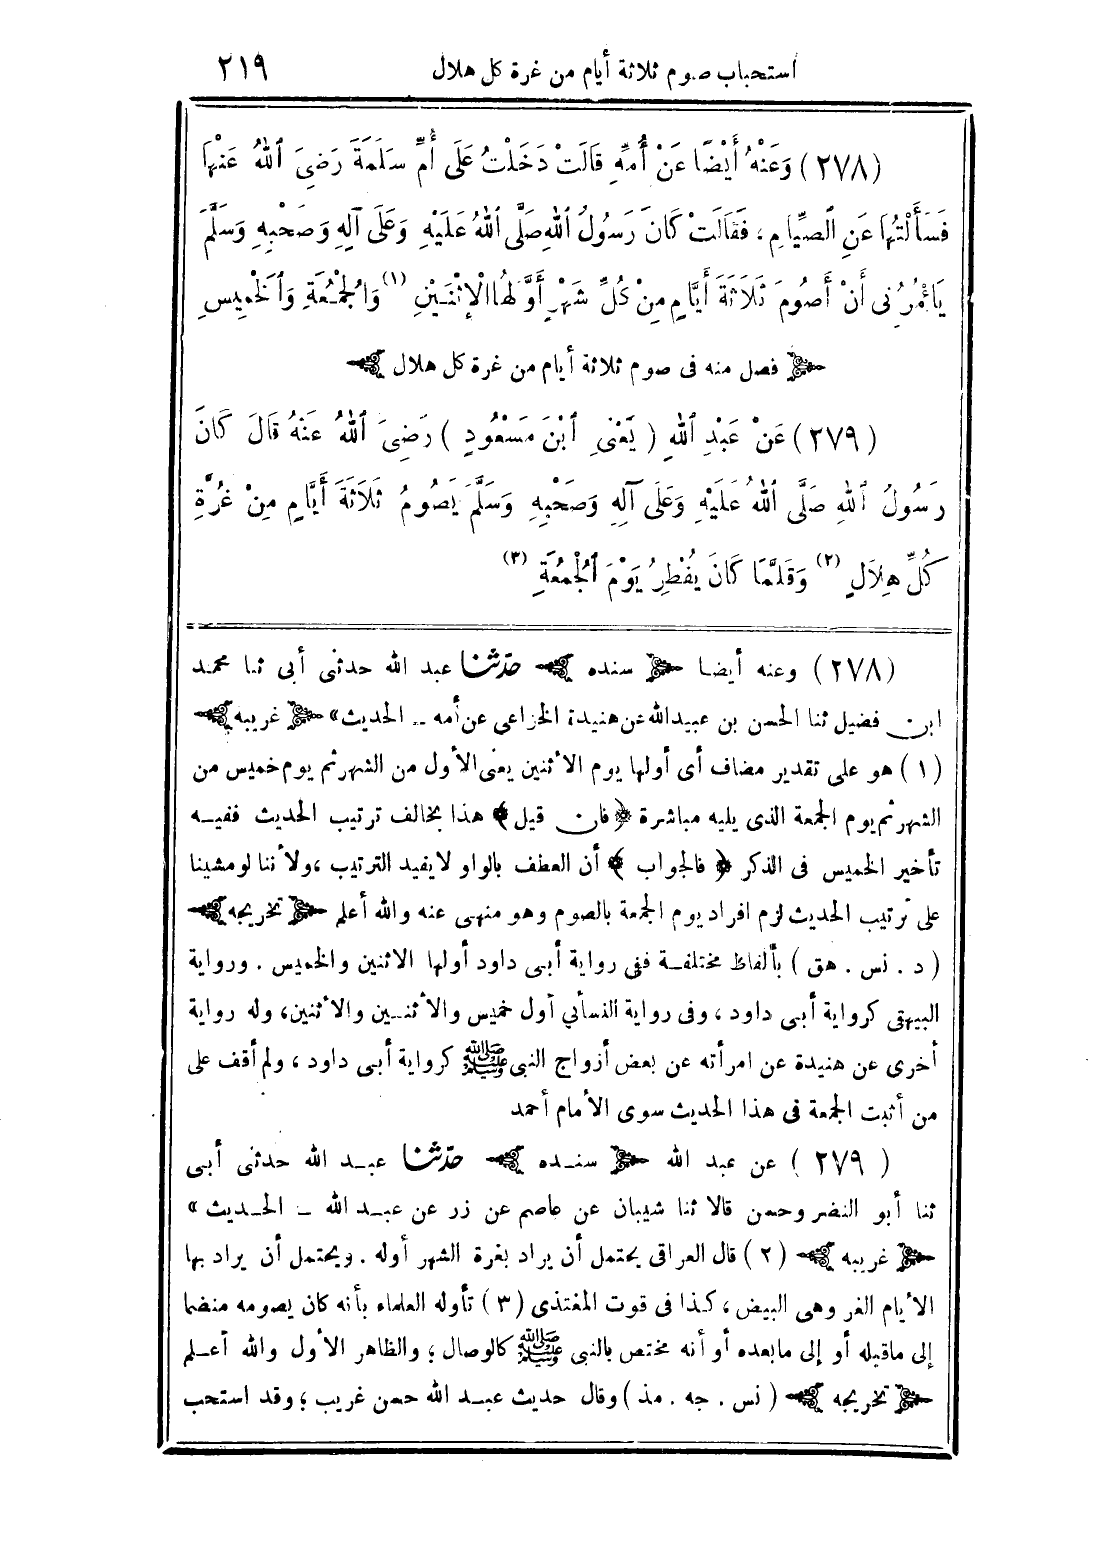 استحباب صوم ثلاثة أيام من غرة كل هلال ٢١٩
(٢٧٨) وَعَنْهُ أَيْضًا عَنْ أُمِّهِ قَالَتْ دَخَلْتُ عَلَى أُمِّ سَلَمَةَ رَضِيَ اللهُ عَنْهَا
فَسَأَلْتُهَا عَنِ الصِّيَامِ، فَقَالَتْ كَانَ رَسُولُ اللهِ صَلَّى اللهُ عَلَيْهِ وَعَلَى آلِهِ وَصَحْبِهِ وَسَلَّمَ
يَأْمُرُنِى أَنْ أَصُومَ ثَلَاثَةَ أَيَّامٍ مِنْ كُلِّ شَهْرٍ أَوَّلُهَا الْإِثْنَيْنِ (١) وَالْجُمْعَةِ وَالْخَمِيسِ
﴿ فصل منه فى صوم ثلاثة أيام من غرة كل هلال ﴾
(٢٧٩) عَنْ عَبْدِ اللهِ (يَعْنِى ابْنَ مَسْعُودٍ) رَضِيَ اللهُ عَنْهُ قَالَ كَانَ
رَسُولُ اللهِ صَلَّى اللهُ عَلَيْهِ وَعَلَى آلِهِ وَصَحْبِهِ وَسَلَّمَ يَصُومُ ثَلَاثَةَ أَيَّامٍ مِنْ غُرَّةِ
كُلِّ هِلَالٍ (٢) وَقَلَّمَا كَانَ يُفْطِرُ يَوْمَ الْجُمُعَةِ (٣)
(٢٧٨) وعنه أيضا ﴿ سنده ﴾ حدّثنا عبد الله حدثنى أبى ثنا محمد
ابن فضيل ثنا الحسن بن عبيد الله عن هنيدة الخزاعى عن أمه ــ الحديث» ﴿ غريبه ﴾
(١) هو على تقدير مضاف أى أولها يوم الأثنين يعنى الأول من الشهر ثم يوم خميس من
الشهر ثم يوم الجمعة الذى يليه مباشرة ﴿ فان قيل ﴾ هذا يخالف ترتيب الحديث ففيه
تأخير الخميس فى الذكر ﴿ فالجواب ﴾ أن العطف بالواو لا يفيد الترتيب، ولأننا لو مشينا
على ترتيب الحديث لزم افراد يوم الجمعة بالصوم وهو منهى عنه والله أعلم ﴿ تخريجه ﴾
(د . نس . هق) بألفاظ مختلفة ففى رواية أبى داود أولها الاثنين والخميس . ورواية
البيهقى كرواية أبى داود، وفى رواية النسأئي أول خميس والأثنين والأثنين، وله رواية
أخرى عن هنيدة عن امرأته عن بعض أزواج النبى ﷺ كرواية أبى داود، ولم أقف على
من أثبت الجمعة فى هذا الحديث سوى الأمام أحمد
(٢٧٩) عن عبد الله ﴿ سنده ﴾ حدّثنا عبد الله حدثنى أبى
ثنا أبو النضر وحسن قالا ثنا شيبان عن عاصم عن زر عن عبد الله ــ الحديث»
﴿ غريبه ﴾ (٢) قال العراقى يحتمل أن يراد بغرة الشهر أوله . ويحتمل أن يراد بها
الأيام الغر وهى البيض، كذا فى قوت المغتذى (٣) تأوله العلماء بأنه كان يصومه منضما
إلى ماقبله أو إلى مابعده أو أنه مختص بالنبى ﷺ كالوصال؛ والظاهر الأول والله أعلم
﴿ تخريجه ﴾ (نس . جه . مذ) وقال حديث عبد الله حسن غريب؛ وقد استحب